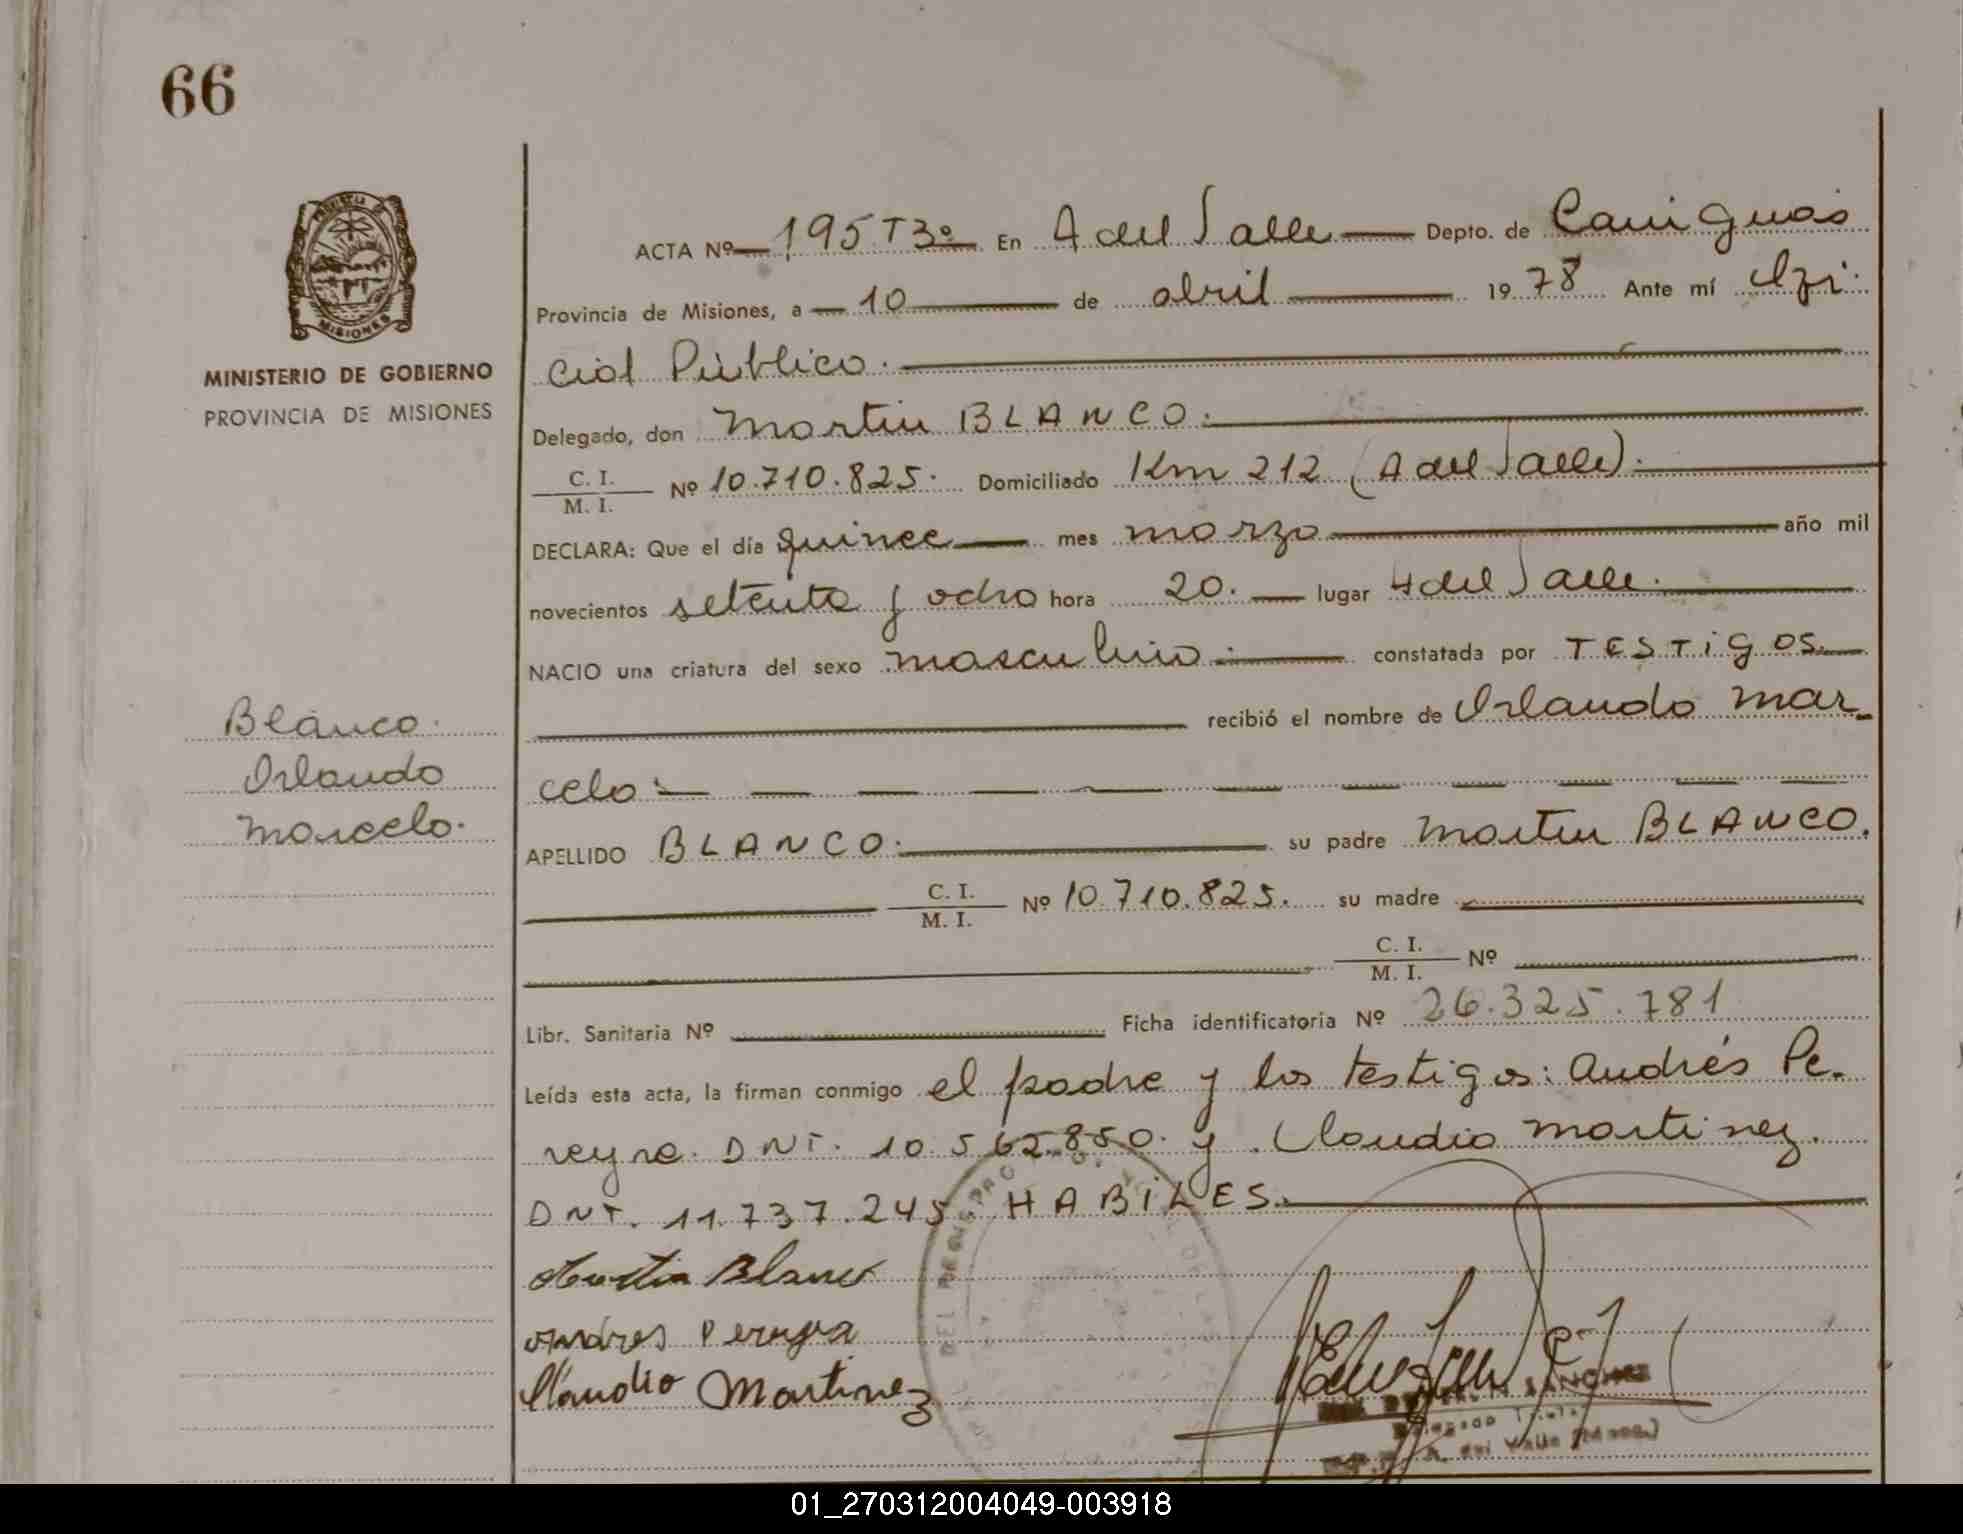 66
PROVINCIA DE
MISIONES
MINISTERIO DE GOBIERNO
PROVINCIA DE MISIONES
ACTA Nº 195 T3º En A del Valle Depto. de Cainguas
Provincia de Misiones, a 10 de abril 1978 Ante mí Ofi
cial Público.
Delegado, don Martin BLANCO.
C. I.
M. I. Nº 10.710.825. Domiciliado Km 212 (A del Valle).
DECLARA: Que el día quince mes marzo año mil
novecientos setenta y ocho hora 20. lugar A del Valle.
NACIO una criatura del sexo masculino. constatada por TESTiGOS.
recibió el nombre de Orlando Mar
celo.
APELLIDO BLANCO. su padre Martin BLANCO.
C. I.
M. I. Nº 10.710.825. su madre
C. I.
M. I. Nº
Libr. Sanitaria Nº Ficha identificatoria Nº 26.325.781
Leída esta acta, la firman conmigo el padre y los testigos: Andrés Pe
reyra. DNI. 10.562.850. y Claudio Martinez.
DNI. 11.737.245. HABiLES.
Martin Blanco
Andres Pereyra
Claudio Martinez
SANCHEZ
Delegado Titular
A. del Valle
Blanco.
Orlando
Marcelo.
01_270312004049-003918